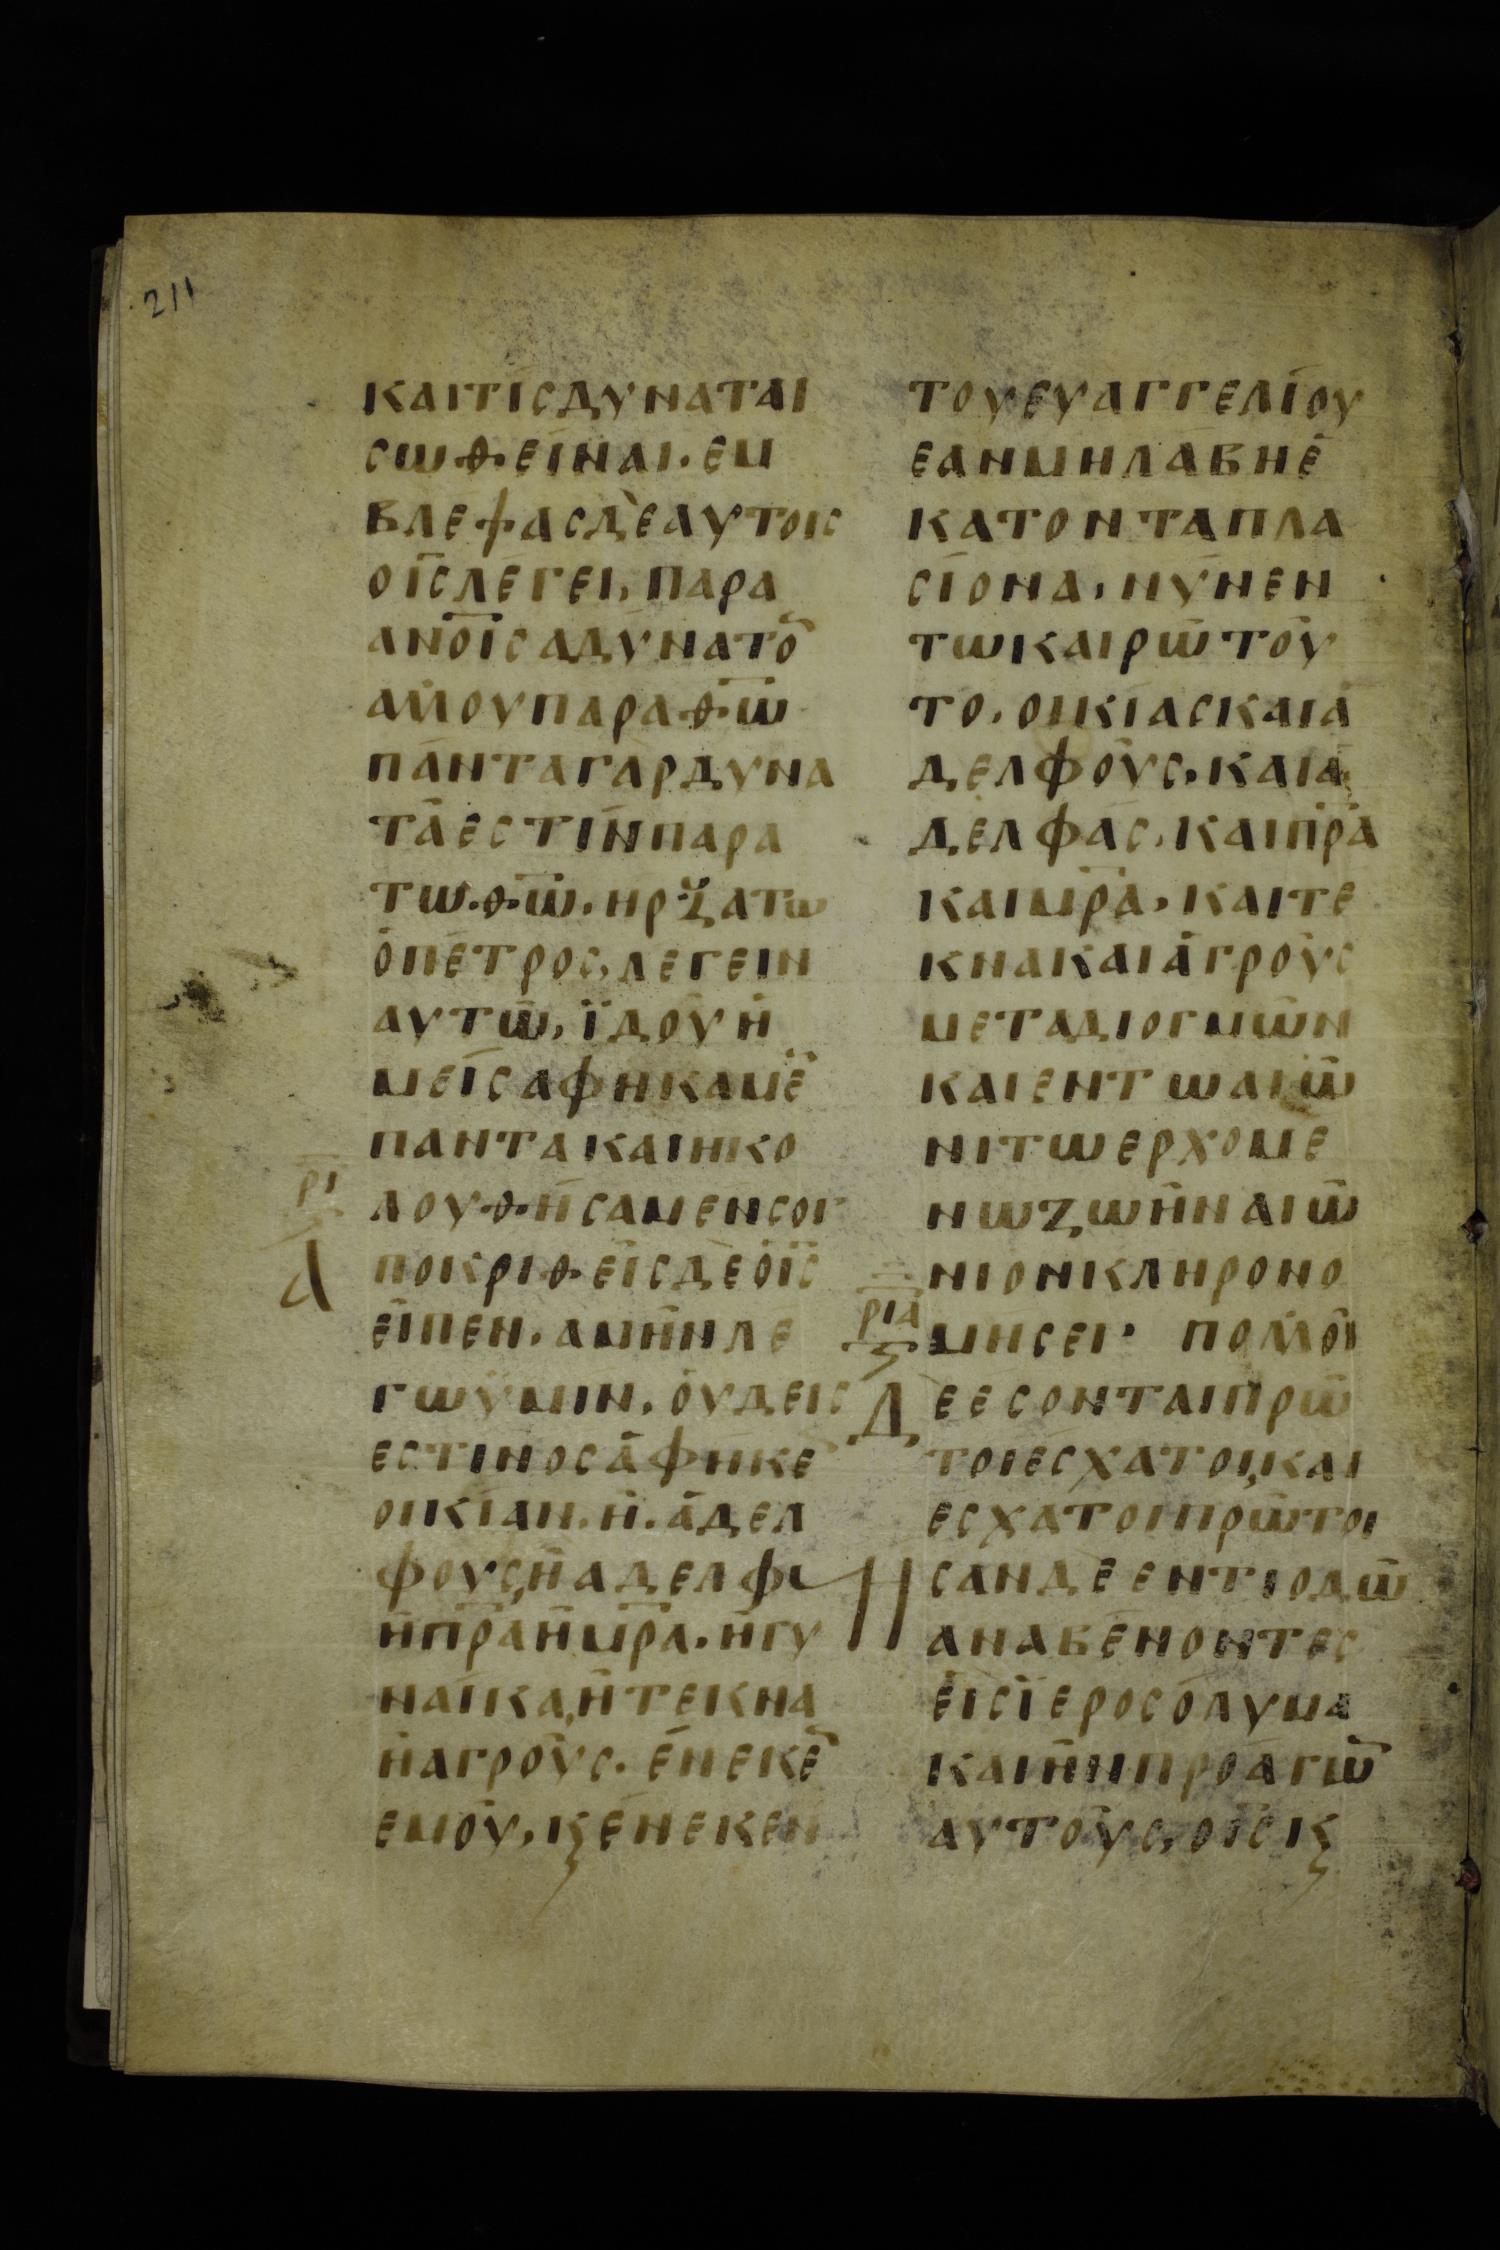 211
ΚΑΙΤΙΣΔΥΝΑΤΑΙ
ΣΩΘΕΙΝΑΙ. ΕΜ
ΒΛΕΨΑΣΔΕΑΥΤΟΙΣ
ΟΙΣΛΕΓΕΙ, ΠΑΡΑ
ΑΝΟΙΣΑΔΥΝΑΤΟ̄
ΑΛΛΟΥΠΑΡΑΘΩ
ΠΑΝΤΑΓΑΡΔΥΝΑ
ΤΑΕΣΤΙΝΠΑΡΑ
ΤΩΘΩ. ΗΡΞΑΤΩ
ΟΠΕΤΡΟΣ, ΛΕΓΕΙΝ
ΑΥΤΩ, ΪΔΟΥΗ
ΜΕΙΣΑΦΗΚΑΜΕ̄
ΠΑΝΤΑΚΑΙΗΚΟ
ΡΙ
ΛΟΥΘΗΣΑΜΕΝΣΟΙ
Α
ΠΟΙΚΡΙΘΕΙΣΔΕΟΙΣ
ΕΙΠΕΝ. ΑΜΗΝΛΕ
ΓΩΫΜΙΝ, ΟΥΔΕΙΣ
ΕΣΤΙΝΟΣΑΦΗΚΕ
ΟΙΚΙΑΝ. Η. ΑΔΕΛ
ΦΟΥΣ, ΗΑΔΕΛΦΑ
ΗΠΡΑΗΜΡΑ. ΗΓΥ
ΝΑΙΚΑ, ΗΤΕΚΝΑ
ΗΑΓΡΟΥΣ. ΕΝΕΚΕ̄
ΕΜΟΥ, Κ̧ΕΝΕΚΕΝ
ΤΟΥΕΥΑΓΓΕΛΙΟΥ
ΕΑΝΜΗΛΑΒΗΕ
ΚΑΤΟΝΤΑΠΛΑ
ΣΙΟΝΑ, ΝΥΝΕΝ
ΤΩΚΑΙΡΩΤΟΥ
ΤΟ, ΟΙΚΙΑΣΚΑΙΑ
ΔΕΛΦΟΥΣ, ΚΑΙΑ
ΔΕΛΦΑΣ, ΚΑΙΠΡΑ
ΚΑΙΜΡΑ, ΚΑΙΤΕ
ΚΝΑΚΑΙΑΓΡΟΥΣ
ΜΕΤΑΔΙΟΓΜΩΝ
ΚΑΙΕΝΤΩΑΙΩ
ΝΙΤΩΕΡΧΟΜΕ
ΝΩΖΩΗΝΑΙΩ
ΝΙΟΝΚΛΗΡΟΝΟ
ΡΙΑ
ΜΗΣΕΙ· ΠΟΛΛΟΙ
Δ
ΕΕΣΟΝΤΑΙΠΡΩ
ΤΟΙΕΣΧΑΤΟΙ, ΚΑΙ
ΕΣΧΑΤΟΙΠΡΩΤΟΙ
ΗΣΑΝΔΕΕΝΤΙΟΔΩ
ΑΝΑΒΕΝΟΝΤΕΣ
ΕΙΣΪΕΡΟΣΟΛΥΜΑ
ΚΑΙΗΝΠΡΟΑΓΩ̄
ΑΥΤΟΥΣ, ΟΙΣΚ̧